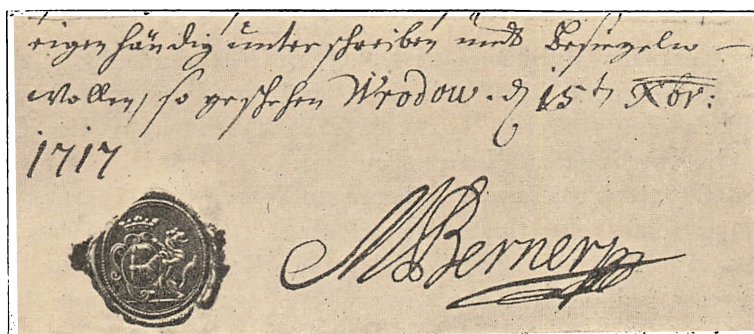 eigenhändig unterschreiben undt besiegeln
wollen, so geschehen Wrodow. d 15t Xbr:
1717
M Berner